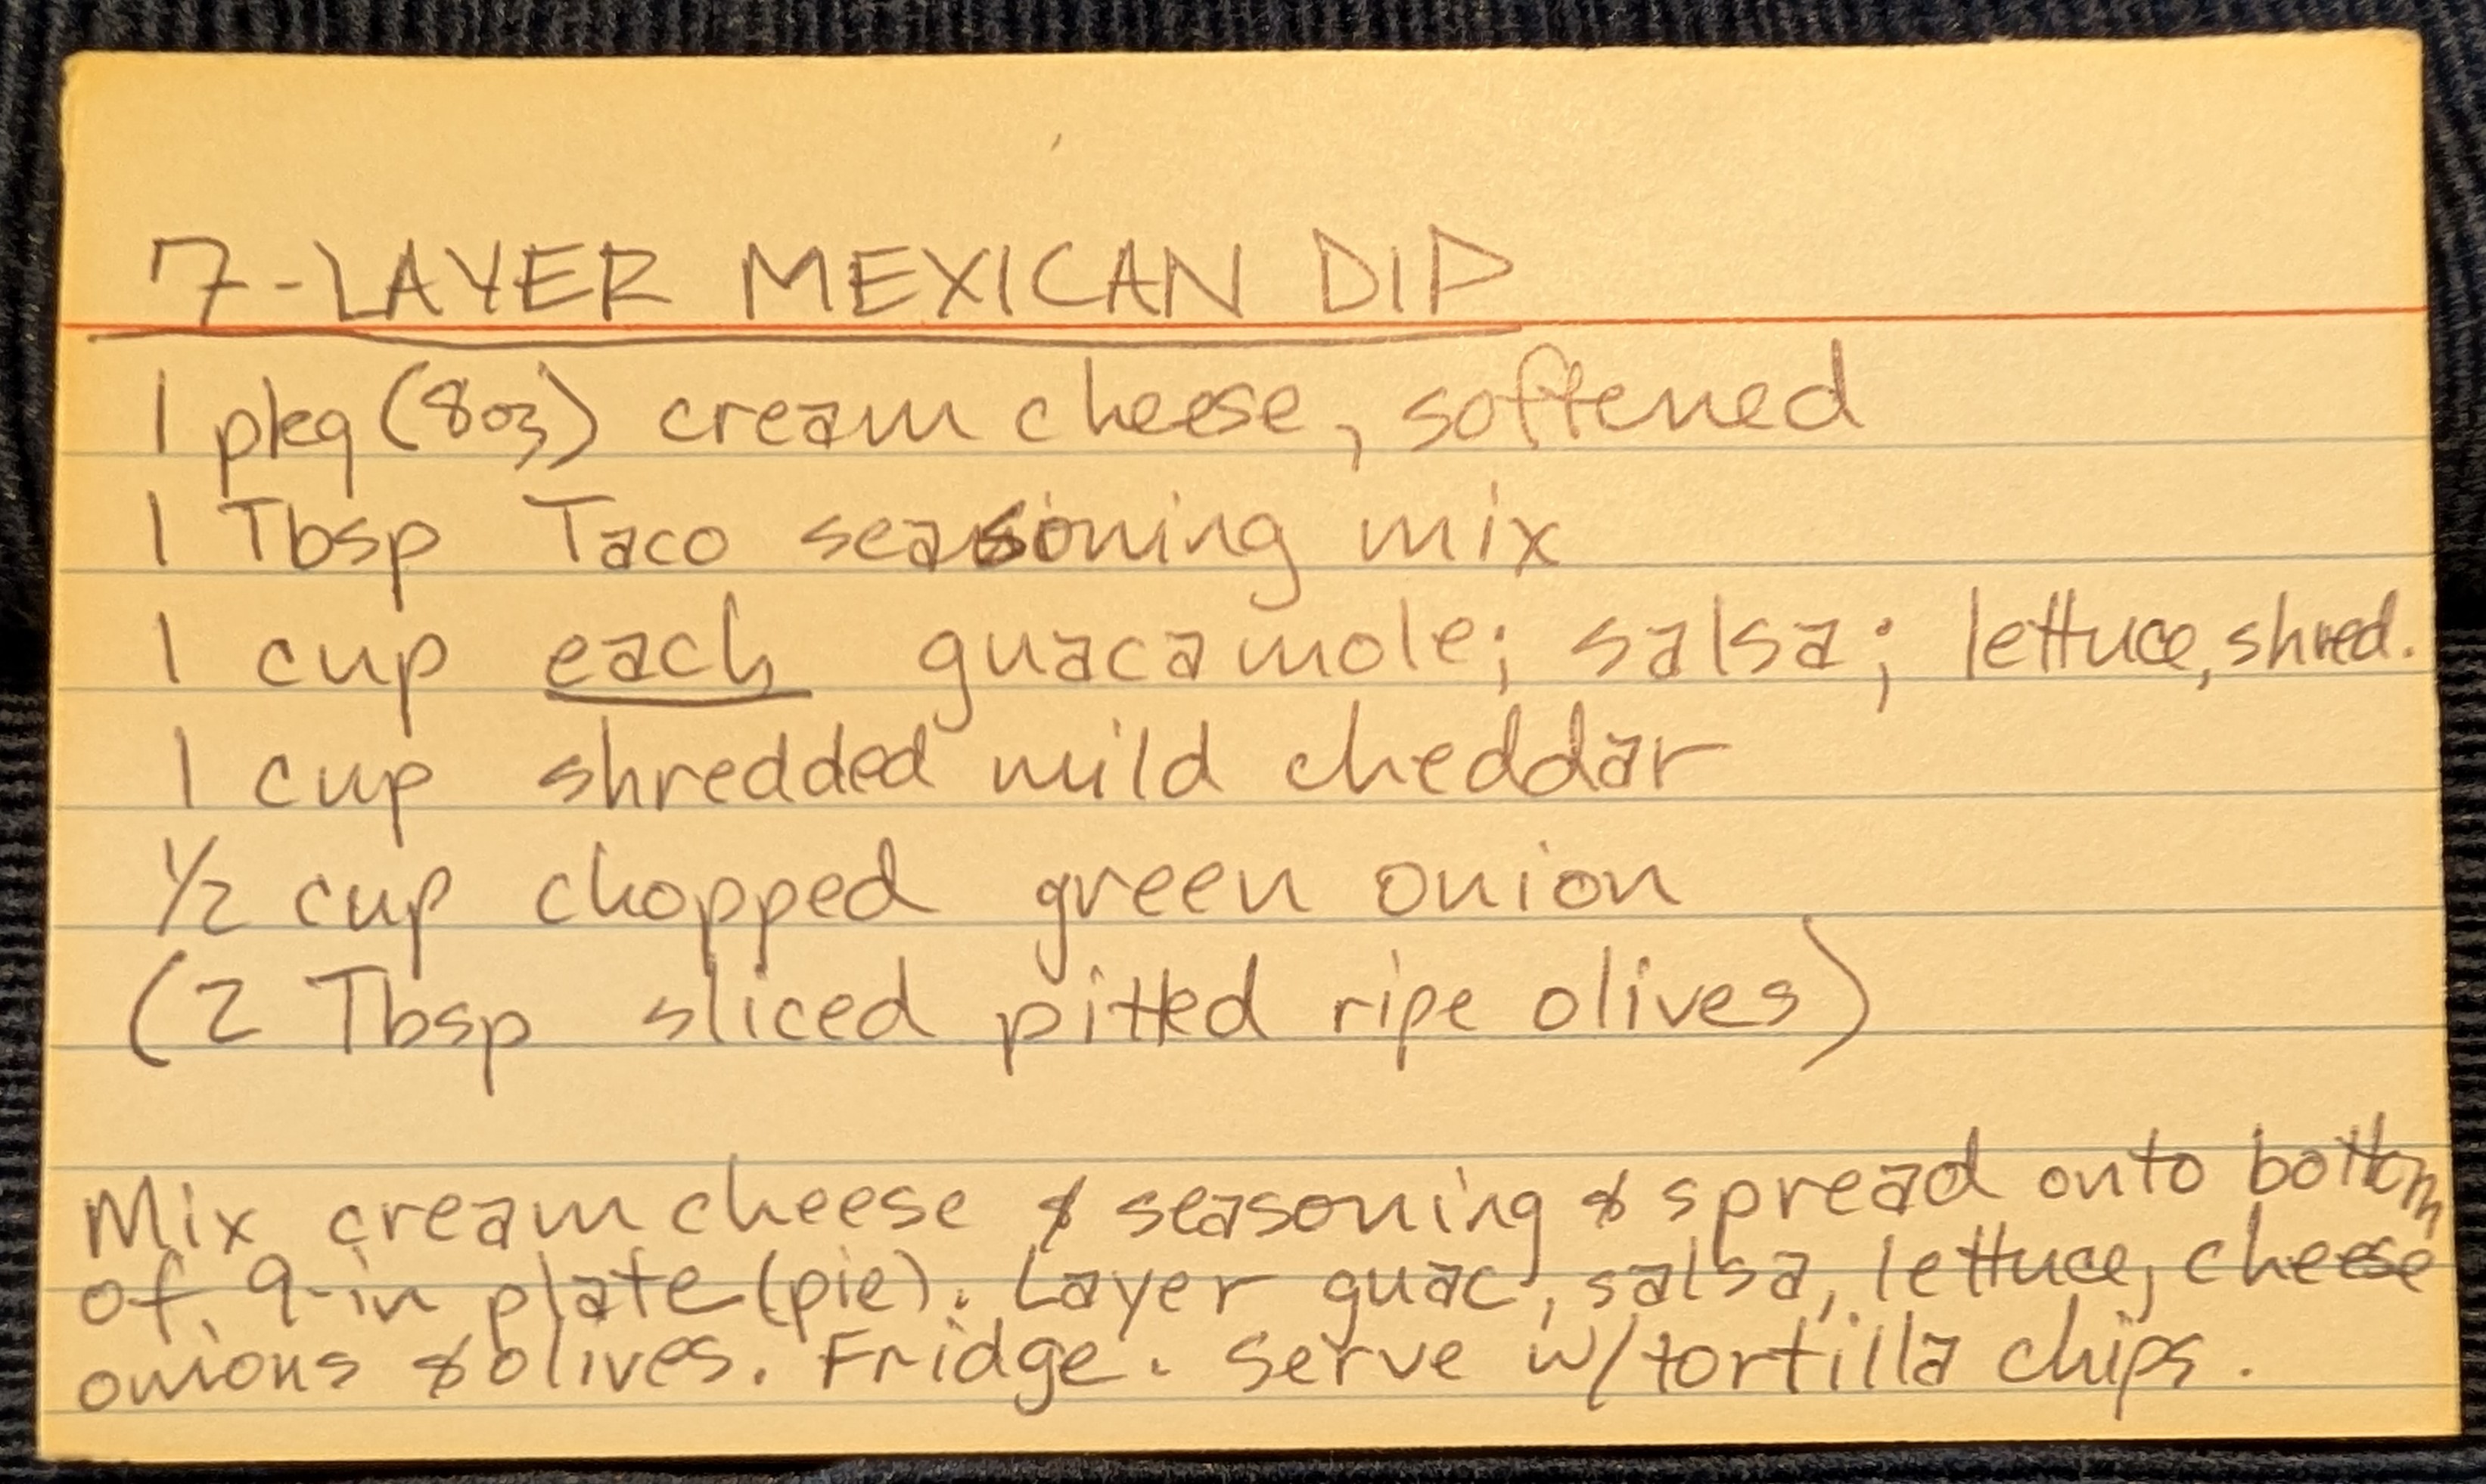 7-LAYER MEXICAN DIP
1 pkg (8oz) cream cheese, softened
1 Tbsp Taco seasoning mix
1 cup each guacamole; salsa; lettuce, shred.
1 cup shredded mild cheddar
1/2 cup chopped green onion
(2 Tbsp sliced pitted ripe olives)
Mix cream cheese & seasoning & spread onto bottom
of 9-in plate (pie). Layer guac, salsa, lettuce, cheese
onions & olives. Fridge. Serve w/tortilla chips.